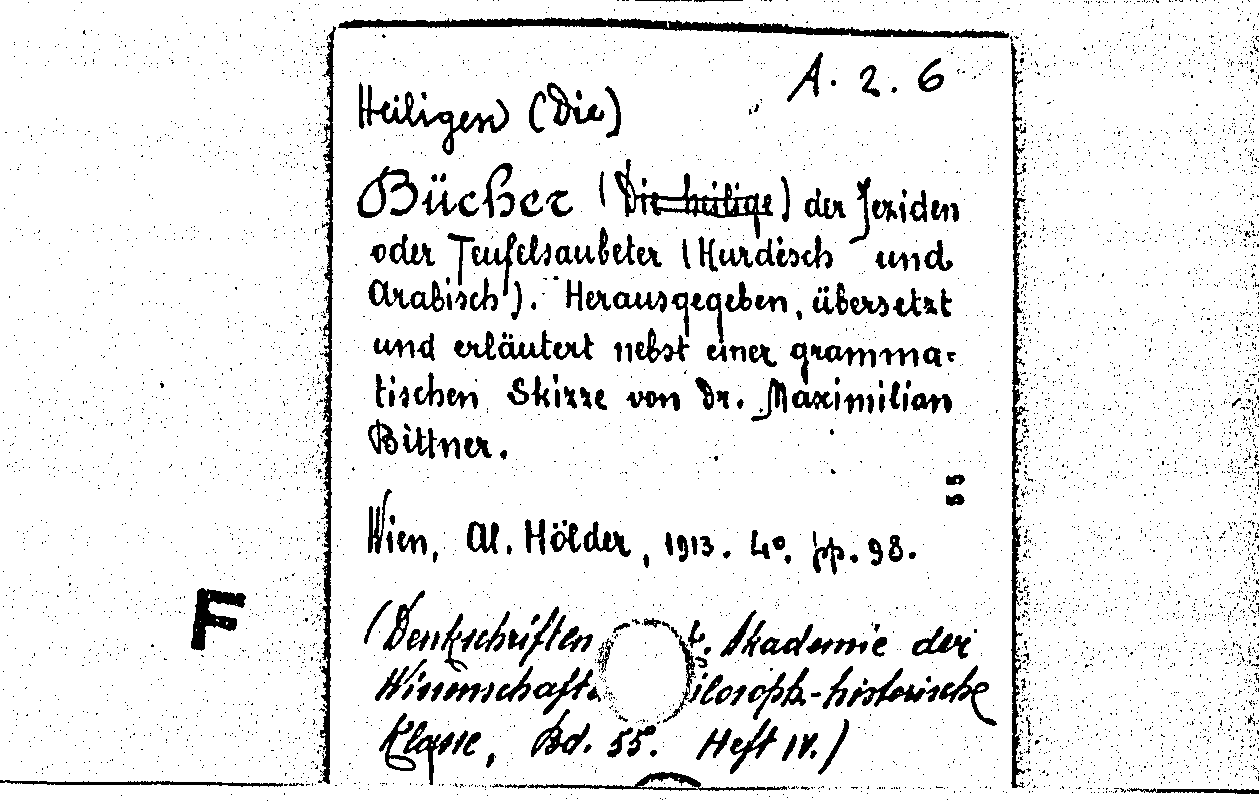 A. 2. 6
Heiligen (Die)
Bücher (Die heilige) der Jeziden
oder Teufelsaubeter (Kurdisch und
Arabisch). Herausgegeben, übersetzt
und erläutert nebst einer gramma-
tischen Skizze von Dr. Maximilian
Bittner.
55
Wien, Al. Hölder, 1913. 4°. pp. 98.
F
(Denkschriften Akademie der
historische
Klasse, Bd. 55. Heft IV.)